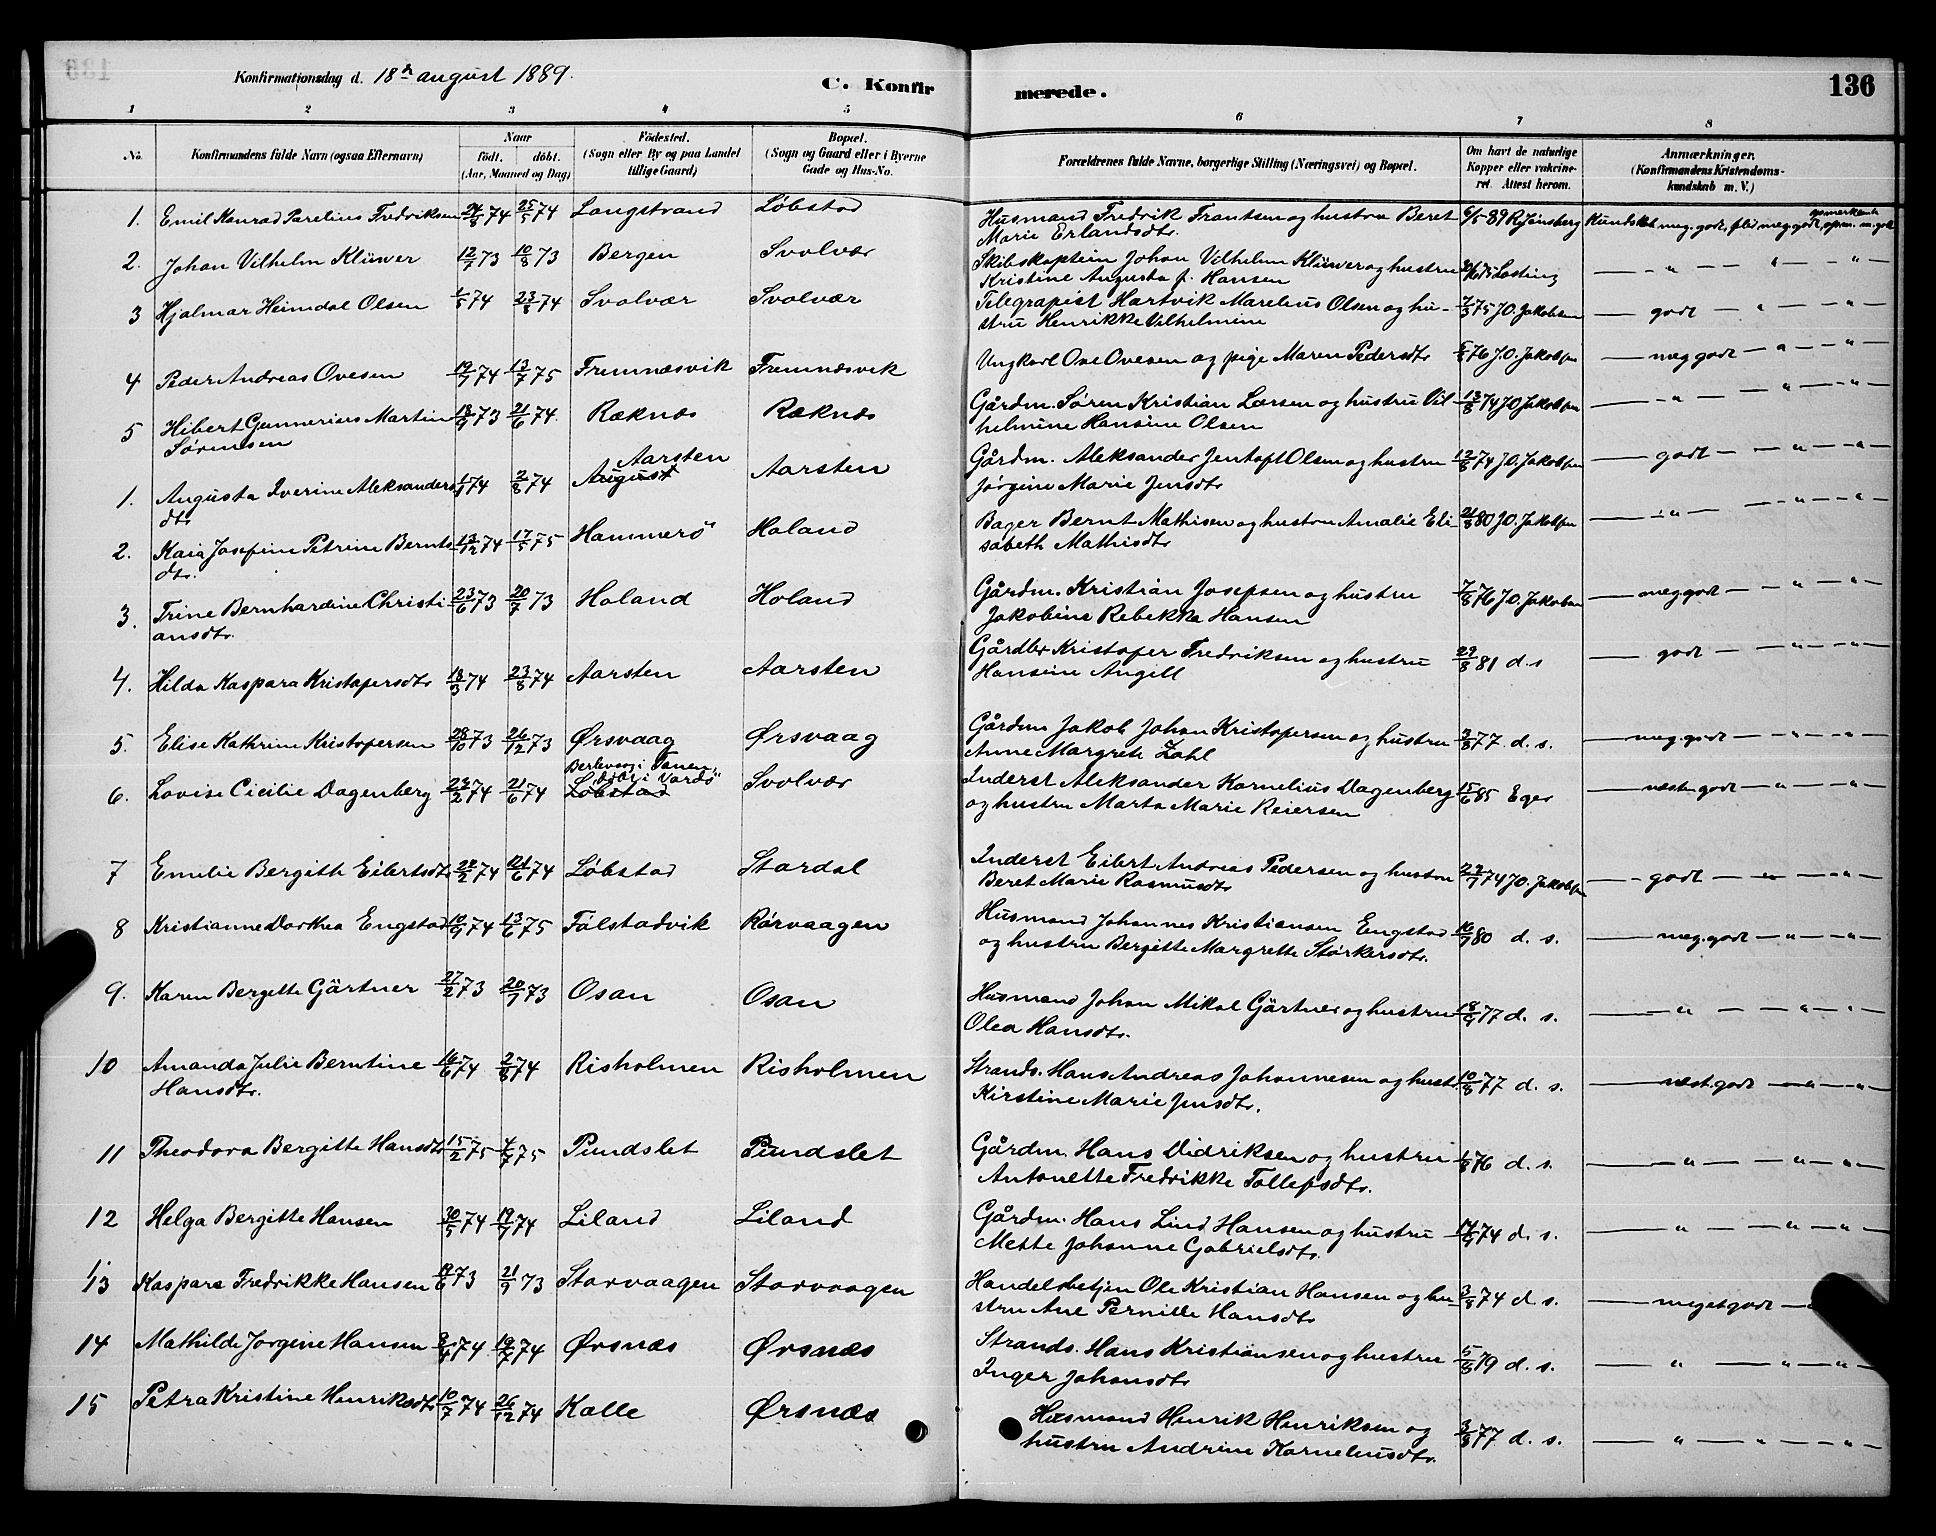 Konfirmationsdag d. 18de august 1889.
C. Konfirmerede.
136
1 2 3 4 5 6 7 8
No. Konfirmandens fulde Navn (ogsaa Efternavn) Naar födt. döbt. (Aar, Maaned og Dag) Födested. (Sogn eller By og paa Landet tillige Gaard) Bopæl. (Sogn og Gaard eller i Byerne Gade og Hus-No. Forældrenes fulde Navne, borgerlige Stilling (Næringsvei) og Bopæl. Om havt de naturlige Kopper eller vakcineret. Attest herom. Anmærkninger. (Konfirmandens Kristendomskundskab m. V.)
1. Emil Konrad Parelius Fredriksen 24/3 74 25/5 74 Langstrand Løbstad Husmand Fredrik Frantsen og hustru Beret 6/5 89 R. Jünsberg Kundskab meg. godt, flid meg. godt, opmerksomh. opm. m. godt
Marie Erlandsdtr.
2. Johan Vilhelm Klüwer 12/7 73 10/8 73 Bergen Svolvær Skibskaptein Johan Vilhelm Klüwer og hustru — " — " — "
Kristine Augusta f. Hansen
3 Hjalmar Heimdal Olsen 1/5 74 23/8 74 Svolvær Svolvær Telegrapist Hartvik Marelius Olsen og hu- 7/3 75 J.O. Jakobsen — godt — " — "
stru Henrikke Vilhelmine
4 Peder Andreas Ovesen 19/9 74 13/7 75 Fremnæsvik Fremnæsvik Ungkarl Ove Ovesen og pige Maren Pedersdtr 6/8 76 J.O. Jakobsen — meg godt — " — "
5 Hibert Gunnerius Martin 18/9 73 21/6 74 Ræknæs Ræknæs Gårdm. Søren Kristian Larsen og hustru Vil 13/8 74 J.O. Jakobsen — " — " — "
Sørensen helmine Hansine Olsen
1. Augusta Iverine Aleksanders 1/1 74 2/8 74 August Aarsten Aarsten Gårdm. Aleksander Jentoft Olsen og hustru 12/8 74 J.O. Jakobsen — godt — " — "
dtr Jørgine Marie Jensdtr
2. Kaia Josefine Petrine Bernts 13/12 74 17/5 75 Hammerö Holand Bager Bernt Mathisen og hustru Amalie Eli 21/8 80 J.O. Jakobsen — " — " — "
dtr. sabeth Mathisdtr
3. Trine Bernhardine Christi 23/6 73 20/7 73 Holand Holand Gårdm. Kristian Josefsen og hustru 7/8 76 J.O. Jakobsen — meg godt — " — "
ansdtr. Jakobine Rebekka Hansen
4. Hilda Kaspara Kristofersdtr 18/3 74 23/8 74 Aarsten Aarsten Gårdbr Kristofer Fredriksen og hustru 29/8 81 d. s — godt — " — "
Hansine Angill
5. Elise Kathrine Kristofersen 28/10 73 26/12 73 Ørsvaag Ørsvaag Gårdm Jakob Johan Kristofersen og hustru 3/8 77. d. s. — meg godt — " — "
Anne Margrete Zahl
6. Lovise Cicilie Dagenberg 23/2 74 21/6 74 Berlevaag i Tanen, döbt i Vardö Løbstad Svolvær Inderst Aleksander Kornelius Dagenberg 15/6 85 Eger — næst godt — " — "
og hustru Marta Marie Reiersen
7 Emelie Bergith Eilertsdtr 24/2 74 21/6 74 Løbstad Stardal Inderst Eilert Andreas Pedersen og hustru 22/7 74 J.O. Jakobsen — godt — " — "
Beret Marie Rasmusdtr
8 Kristianne Dorthea Engstad 10/9 74 13/6 75 Fölstadvik Rørvaagen Husmand Johannes Kristiansen Engstad 16/7 80 d. s. — meg. godt — " — "
og hustru Bergitte Margrette Størkersdtr.
9. Karen Bergette Gärtner 27/2 73 20/7 73 Osan Osan Husmand Johan Mikal Gärtner og hustru 18/9 77 d. s. — " — " — "
Olea Hansdtr.
10 Amanda Julie Berntine 16/6 74 2/8 74 Risholmen Risholmen Strands. Hans Andreas Johannesen og hust. 10/8 77 d. s. — næst. godt — " — "
Hansdtr. Kirstine Marie Jensdtr.
11 Theodora Bergitte Hansdtr 15/2 75 4/7 75 Pundslet Pundslet Gårdm. Hans Didriksen og hustru 1/8 76 d. s. — " — " — "
Antonette Fredrikke Tollefsdtr.
12 Helga Bergitte Hansen 30/5 74 19/7 74 Liland Liland Gårdm. Hans Lind Hansen og hustru 14/9 74 d. s. — " — " — "
Mette Johanne Gabrielsdtr.
13 Kaspara Fredrikke Hansen 19/6 73 21/9 73 Storvaagen Storvaagen Handelsbetjen Ole Kristian Hansen og hu 3/8 74 d. s. — meget godt —
stru Ane Pernille Hansdtr
14 Mathilde Jørgine Hansen 3/4 74 19/7 74 Ørsnæs Ørsnæs Strands. Hans Kristiansen og hustru 5/8 79 d. s. — " — " — "
Inger Johansdtr
15 Petra Kristine Henriksdtr 10/7 74 26/12 74 Kalle Ørsnæs Husmand Henrik Henriksen og 3/8 77 d. s. — " — " — "
hustru Andrine Korneliusdtr.